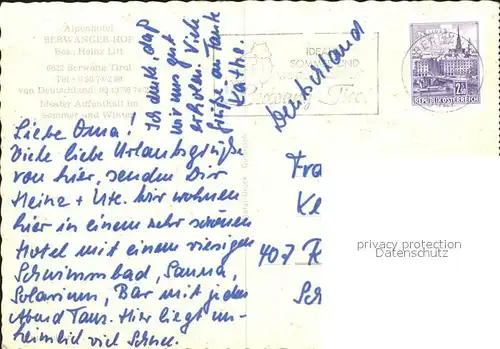 Alpenhotel
BERWANGER-HOF
Bes. Heinz Litt
6622 Berwang Tirol
Tel.
von Deutschland
Idealer Aufenthalt im
Sommer und Winter
IDEAL
SOMMER UND
Berwang Tirol
REPUBLIK ÖSTERREICH
Deutschland
Liebe Oma!
Viele liebe Urlaubsgrüße
von hier, senden Dir
Heinz + Ute. Wir wohnen
hier in einem sehr schönen
Hotel mit einem riesigen
Schwimmbad, Sauna,
Solarium, Bar mit jeden
Abend Tanz. Hier liegt un-
heimlich viel Schnee.
Ich denke, daß
wir uns gut
erholen. Viele
Grüße an Tante
Käthe.
Fra
Ke
407
Sch
privacy protection
Datenschutz